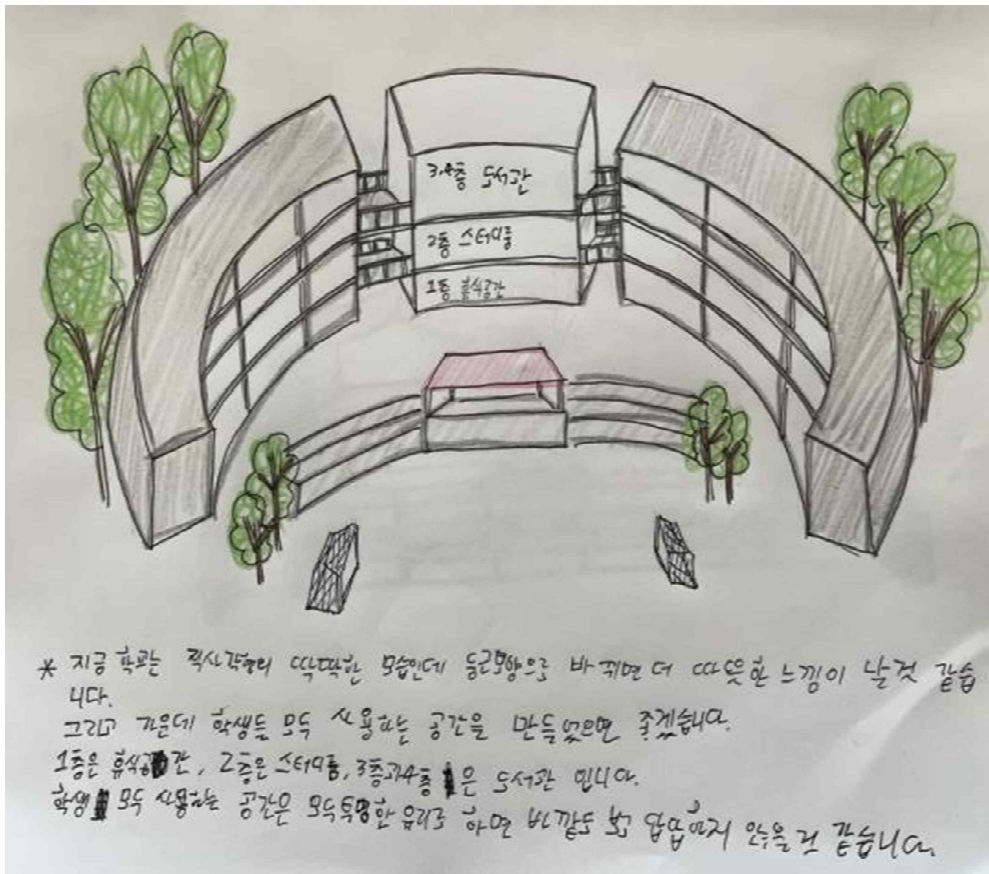 3,4층 도서관
2층 스터디룸
1층 휴식공간
* 지금 학교는 직사각형의 딱딱한 모습인데 둥근모양으로 바뀌면 더 따뜻한 느낌이 날것 같습
니다.
그리고 가운데 학생들 모두 사용하는 공간을 만들었으면 좋겠습니다.
1층은 휴식공간, 2층은 스터디룸, 3층과4층은 도서관 입니다.
학생 모두 사용하는 공간은 모두투명한 유리로 하면 바깥도 보고 답답하지 않을것 같습니다.